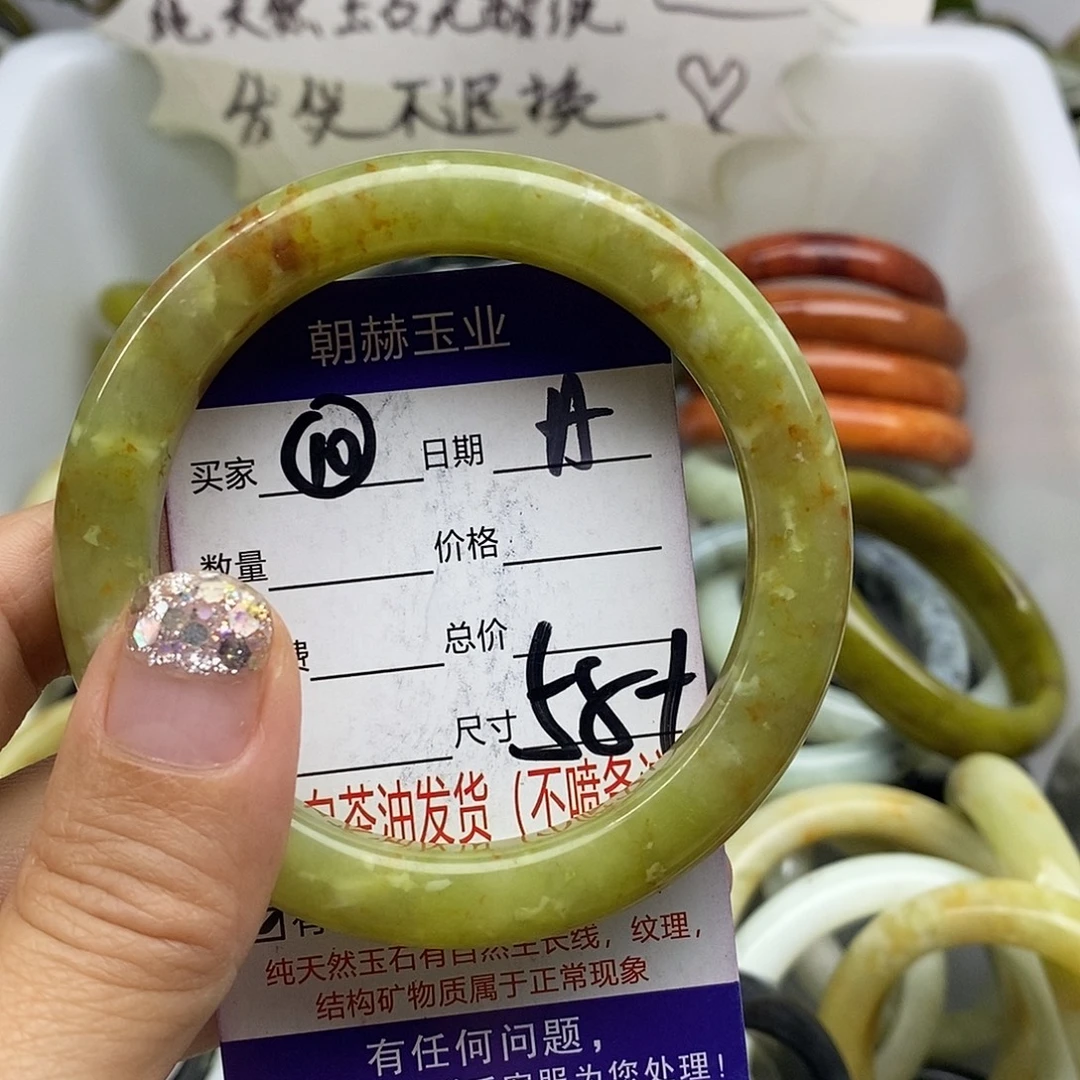 纯天然玉石无
售货不退换
朝赫玉业
买家 ⑩ 日期 A
数量 价格
费 总价
尺寸 58+
白茶油发货（不喷多
有
纯天然玉石有自然生长线，纹理，
结构矿物质属于正常现象
有任何问题，
客服为您处理！